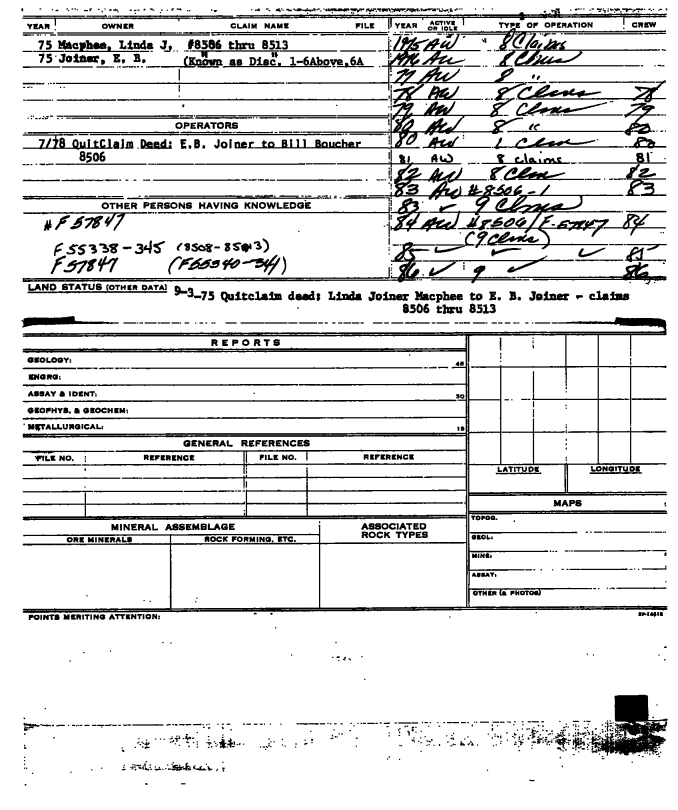 YEAR OWNER CLAIM NAME FILE YEAR ACTIVE OR IDLE TYPE OF OPERATION CREW
75 Macphee, Linda J, #8506 thru 8513
75 Joiner, E. B. (Known as Disc. 1-6Above,6A
1975 AW 8 Claims
1976 AW 8 Clms
77 AW 8 "
78 AW 8 Clms 78
79 AW 8 Clms 79
80 AW 8 " 80
80 AW 1 Clm 80
81 AW 8 claims 81
82 AW 8 Clm 82
83 AW #8506-1 83
83 ✓ 9 Clms
84 AW #8506/F-57847 84
(9 Clms)
85 ✓ ✓ ✓ 85
86 ✓ 9 ✓ 86
OPERATORS
7/78 QuitClaim Deed: E.B. Joiner to Bill Boucher
8506
OTHER PERSONS HAVING KNOWLEDGE
#F57847
F55338-345 (8508-8513)
F57847 (F55340-341)
LAND STATUS (OTHER DATA) 9-3-75 Quitclaim deed: Linda Joiner Macphee to E. B. Joiner - claims
8506 thru 8513
REPORTS
GEOLOGY: 45
ENGRG:
ASSAY & IDENT: 30
GEOPHYS, & GEOCHEM:
METALLURGICAL: 15
GENERAL REFERENCES
FILE NO. REFERENCE FILE NO. REFERENCE
LATITUDE LONGITUDE
MAPS
TOPOG.
GEOL:
MINE:
ASSAY:
OTHER (& PHOTOS)
MINERAL ASSEMBLAGE
ORE MINERALS ROCK FORMING, ETC.
ASSOCIATED
ROCK TYPES
POINTS MERITING ATTENTION: